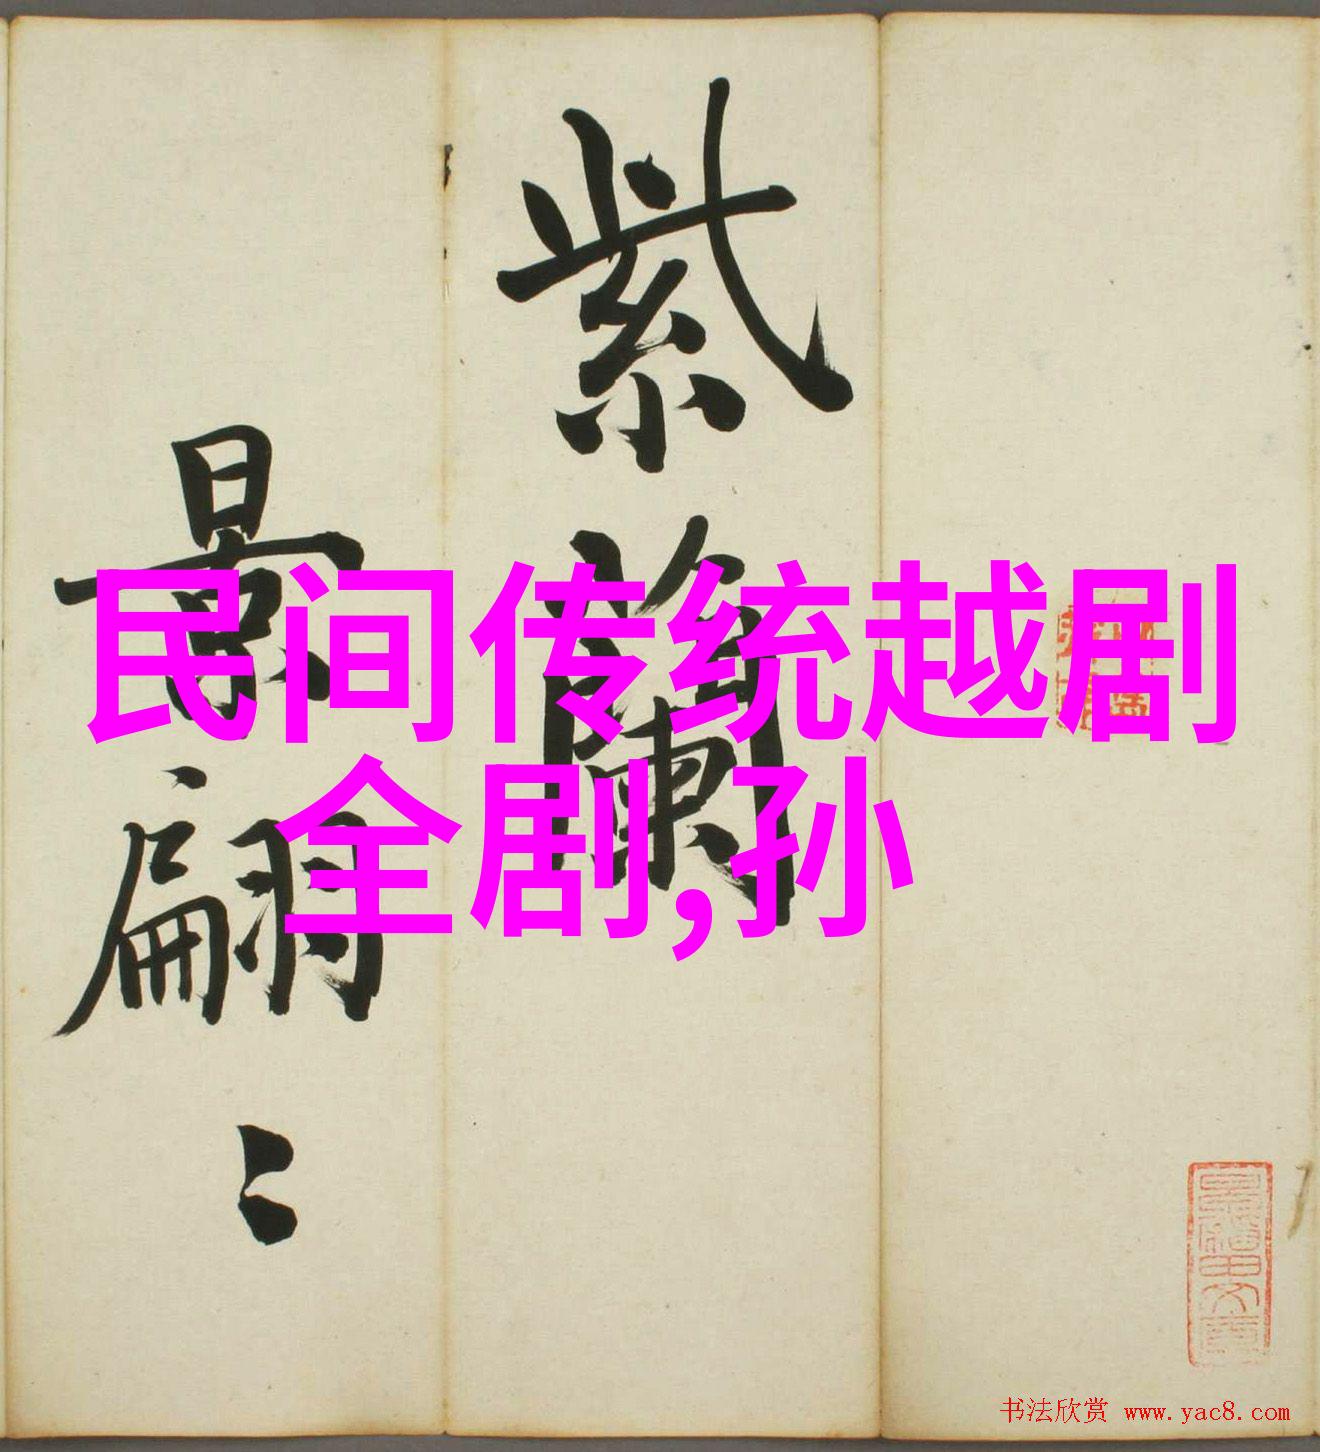 紫蘭
景翩〻
民间传统越剧
全剧,孙
书法欣赏 www.yac8.com